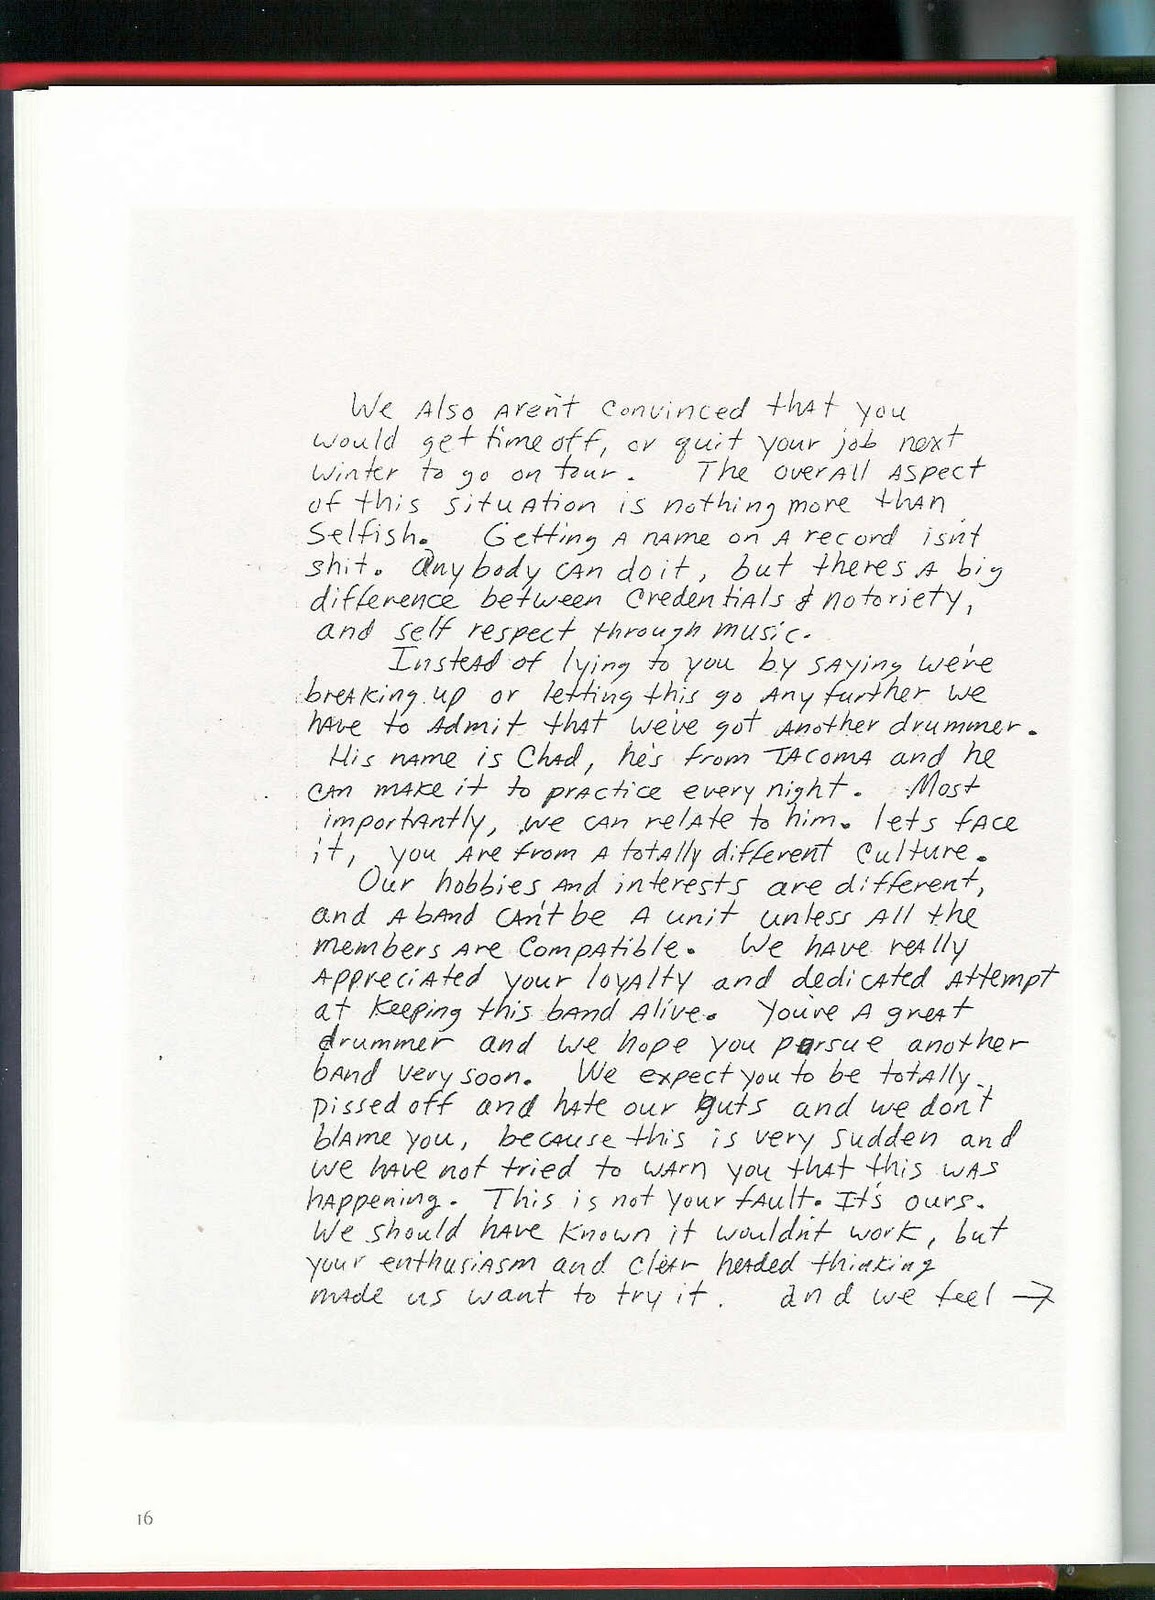 We Also Aren't convinced thAt you
would get time off, or quit your job next
winter to go on tour. The overAll Aspect
of this situAtion is nothing more thAn
Selfish. Getting A nAme on A record isn't
shit. Anybody cAn do it, but theres A big
difference between CredentiAls & notoriety,
and self respect through music.
InsteAd of lying to you by sAying we're
breAking up or letting this go Any further we
hAve to Admit thAt we've got Another drummer.
His nAme is ChAd, he's from TAcomA and he
cAn mAke it to prActice every night. Most
importAntly, we cAn relAte to him. lets fAce
it, you Are from A totAlly different Culture.
Our hobbies And interests are different,
and A bAnd cAn't be A unit unless All the
members Are CompAtible. We hAve reAlly
AppreciAted your loyAlty and dedicAted Attempt
at keeping this bAnd Alive. You're A greAt
drummer and we hope you pursue another
bAnd very soon. We expect you to be totAlly
pissed off and hAte our guts and we don't
blAme you, becAuse this is very sudden and
we hAve not tried to wArn you thAt this wAs
hAppening. This is not your fAult. It's ours.
We should hAve known it wouldn't work, but
your enthusiAsm and cleAr heAded thinking
mAde us want to try it. and we feel →
16